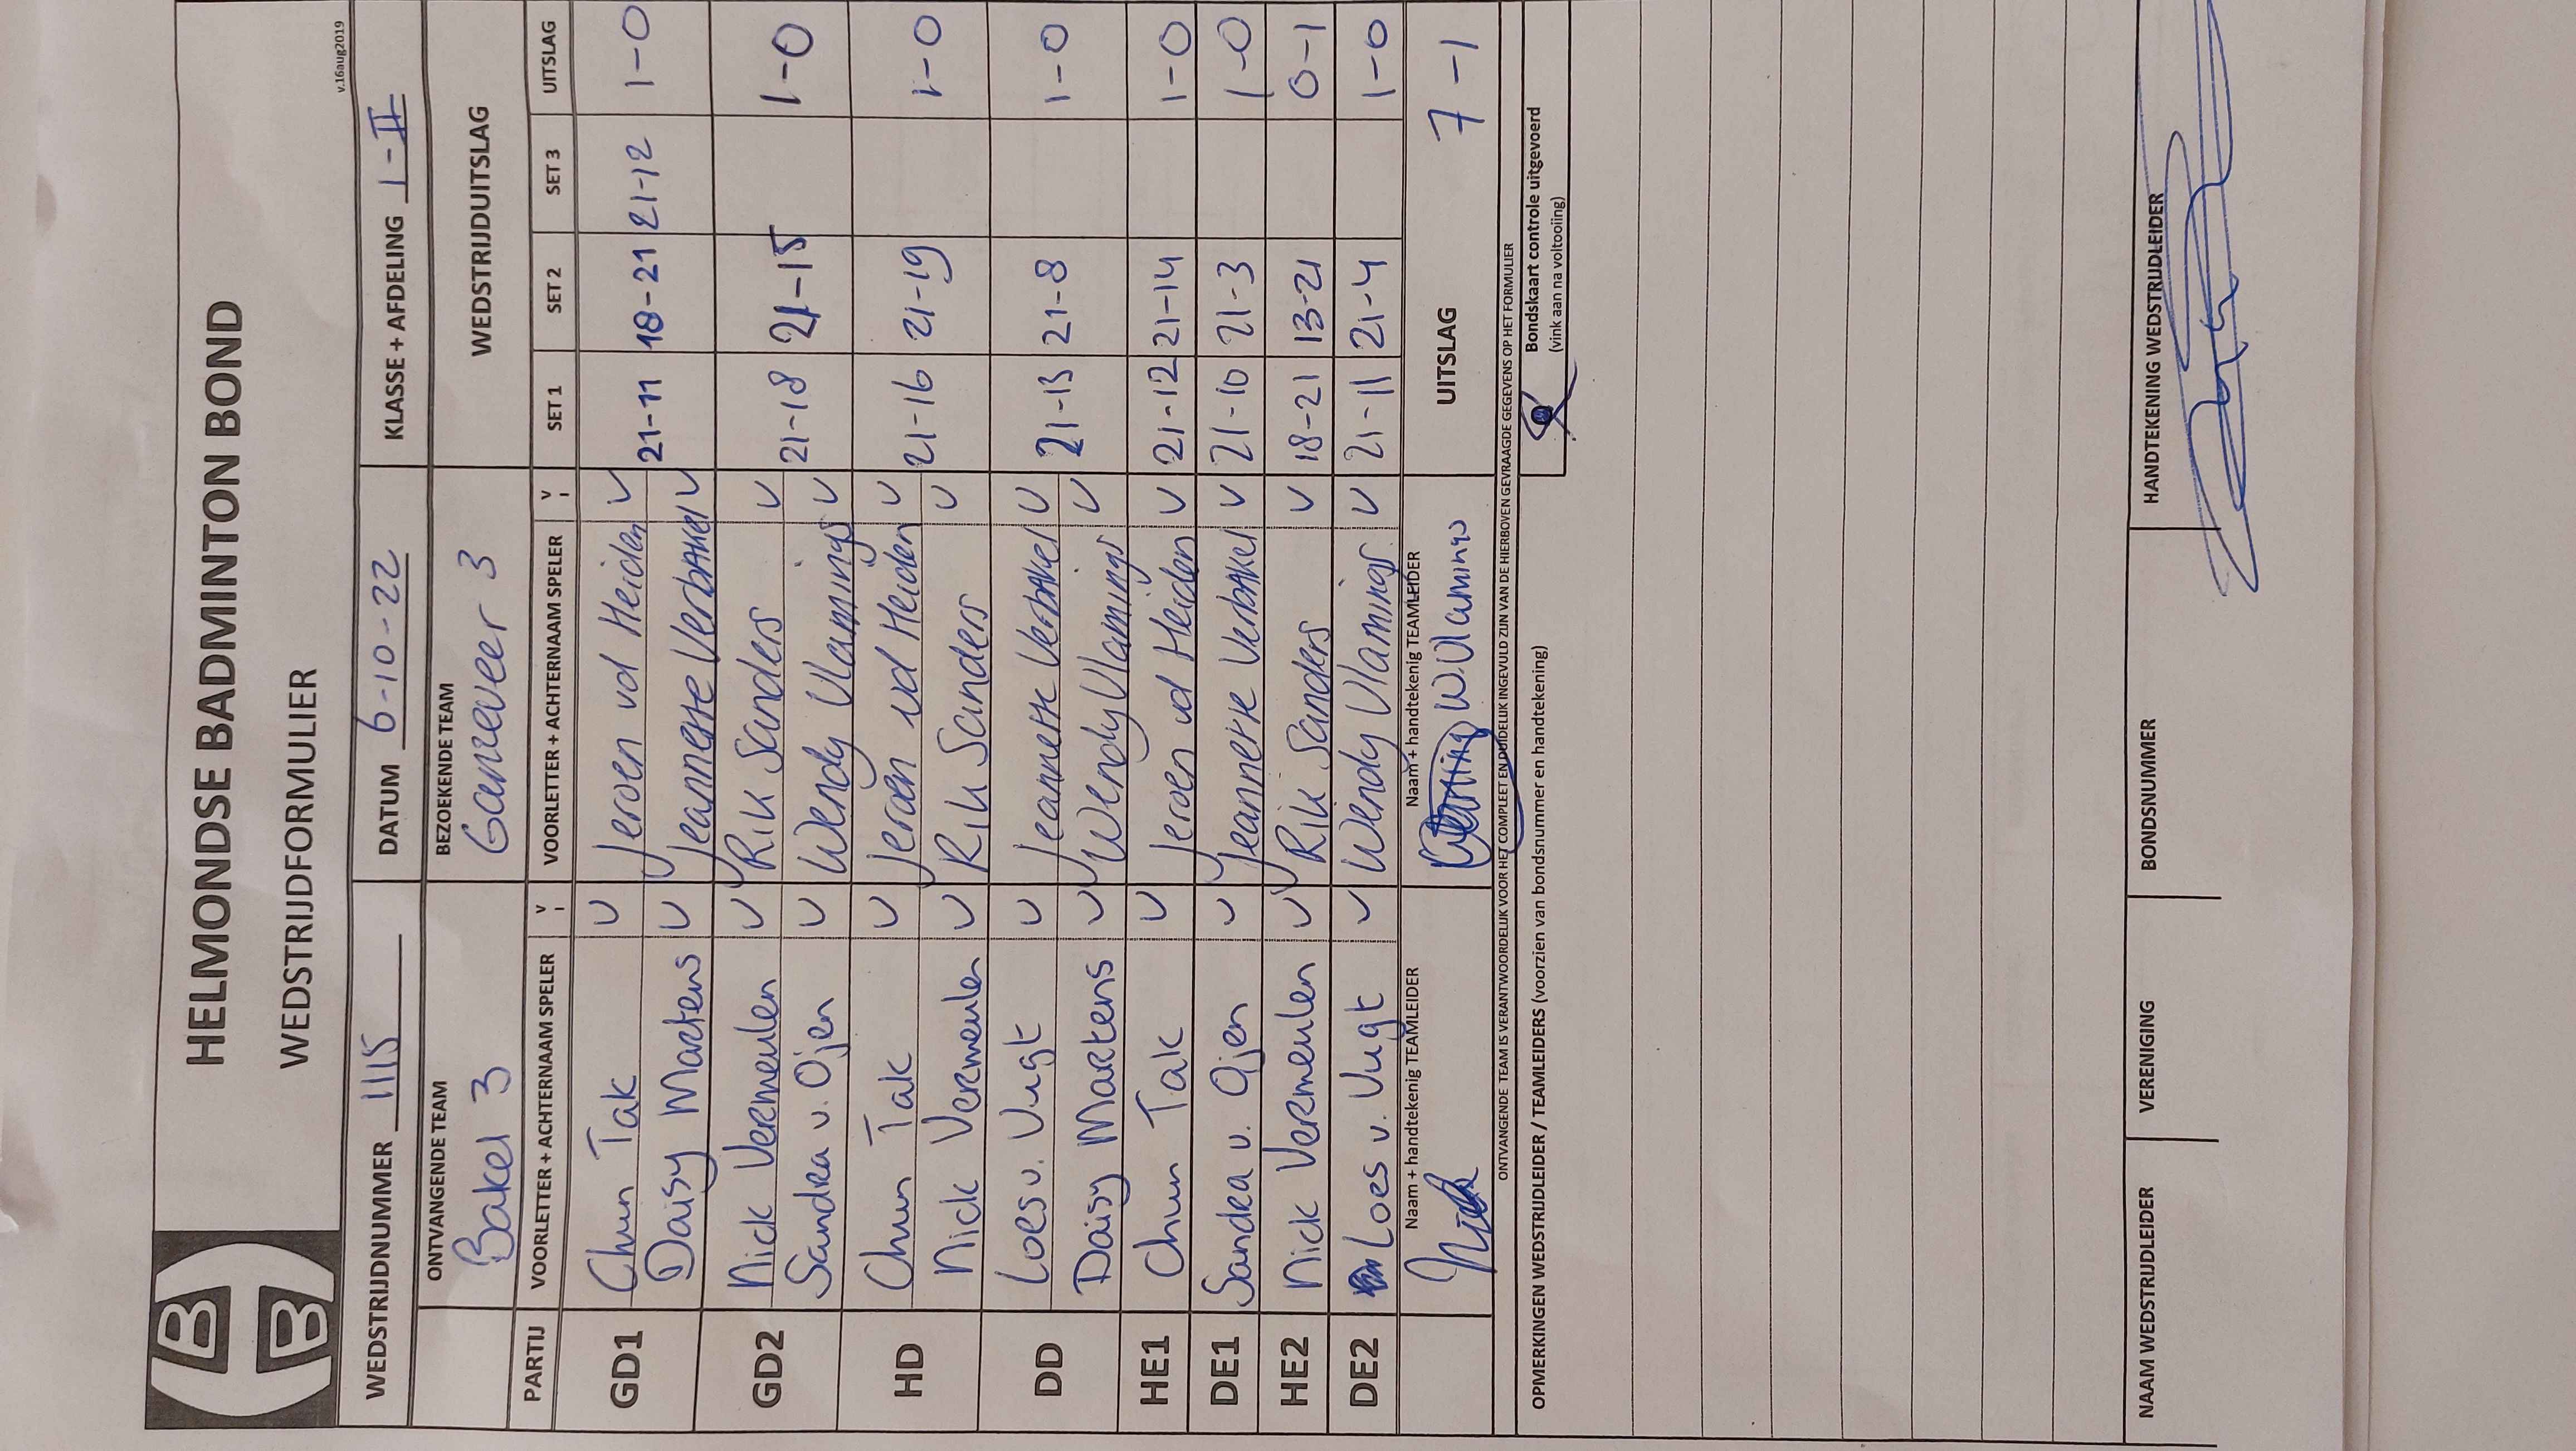 HELMONDSE BADMINTON BOND
WEDSTRIJDFORMULIER
v.16aug2019
WEDSTRIJDNUMMER 1115 DATUM 6-10-22 KLASSE + AFDELING 1-II
ONTVANGENDE TEAM BEZOEKENDE TEAM WEDSTRIJDUITSLAG
Bakel 3 Ganzeveer 3
PARTIJ VOORLETTER + ACHTERNAAM SPELER V VOORLETTER + ACHTERNAAM SPELER V SET 1 SET 2 SET 3 UITSLAG
GD1 Chun Tak v Jeroen vd Heiden v 21-11 18-21 21-12 1-0
Daisy Martens v Jeannette Verbakel v
GD2 Nick Vermeulen v Rik Sanders v 21-18 21-15 1-0
Sandra v. Oijen v Wendy Vlamings v
HD Chun Tak v Jeroen vd Heiden v 21-16 21-19 1-0
Nick Vermeulen v Rik Sanders v
DD Loes v. Vugt v Jeannette Verbakel v 21-13 21-8 1-0
Daisy Martens v Wendy Vlamings v
HE1 Chun Tak v Jeroen vd Heiden v 21-12 21-14 1-0
DE1 Sandra v. Oijen v Jeannette Verbakel v 21-10 21-3 1-0
HE2 Nick Vermeulen v Rik Sanders v 18-21 13-21 0-1
DE2 Loes v. Vugt v Wendy Vlamings v 21-11 21-4 1-0
Naam + handtekenig TEAMLEIDER Naam + handtekenig TEAMLEIDER UITSLAG 7-1
Nick W. Vlamings
ONTVANGENDE TEAM IS VERANTWOORDELIJK VOOR HET COMPLEET EN DUIDELIJK INGEVULD ZIJN VAN DE HIERBOVEN GEVRAAGDE GEGEVENS OP HET FORMULIER
OPMERKINGEN WEDSTRIJDLEIDER / TEAMLEIDERS (voorzien van bondsnummer en handtekening)
Bondskaart controle uitgevoerd
(vink aan na voltooiing)
NAAM WEDSTRIJDLEIDER VERENIGING BONDSNUMMER HANDTEKENING WEDSTRIJDLEIDER